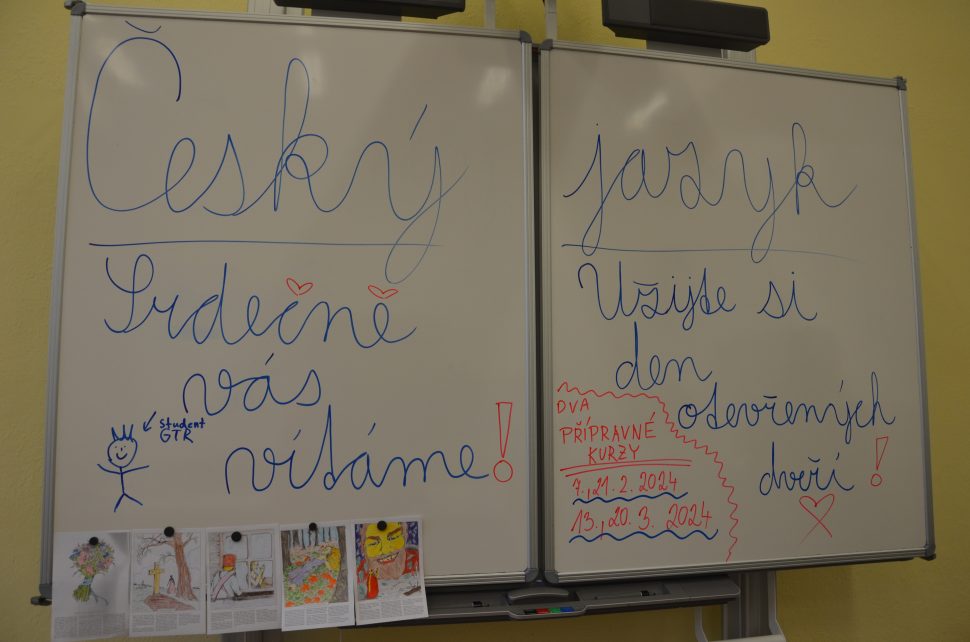 Český
Srdečně
vás
vítáme!
Student
GTR
jazyk
Užijte si
den
otevřených
dveří!
DVA
PŘÍPRAVNÉ
KURZY
7., 21. 2. 2024
13., 20. 3. 2024